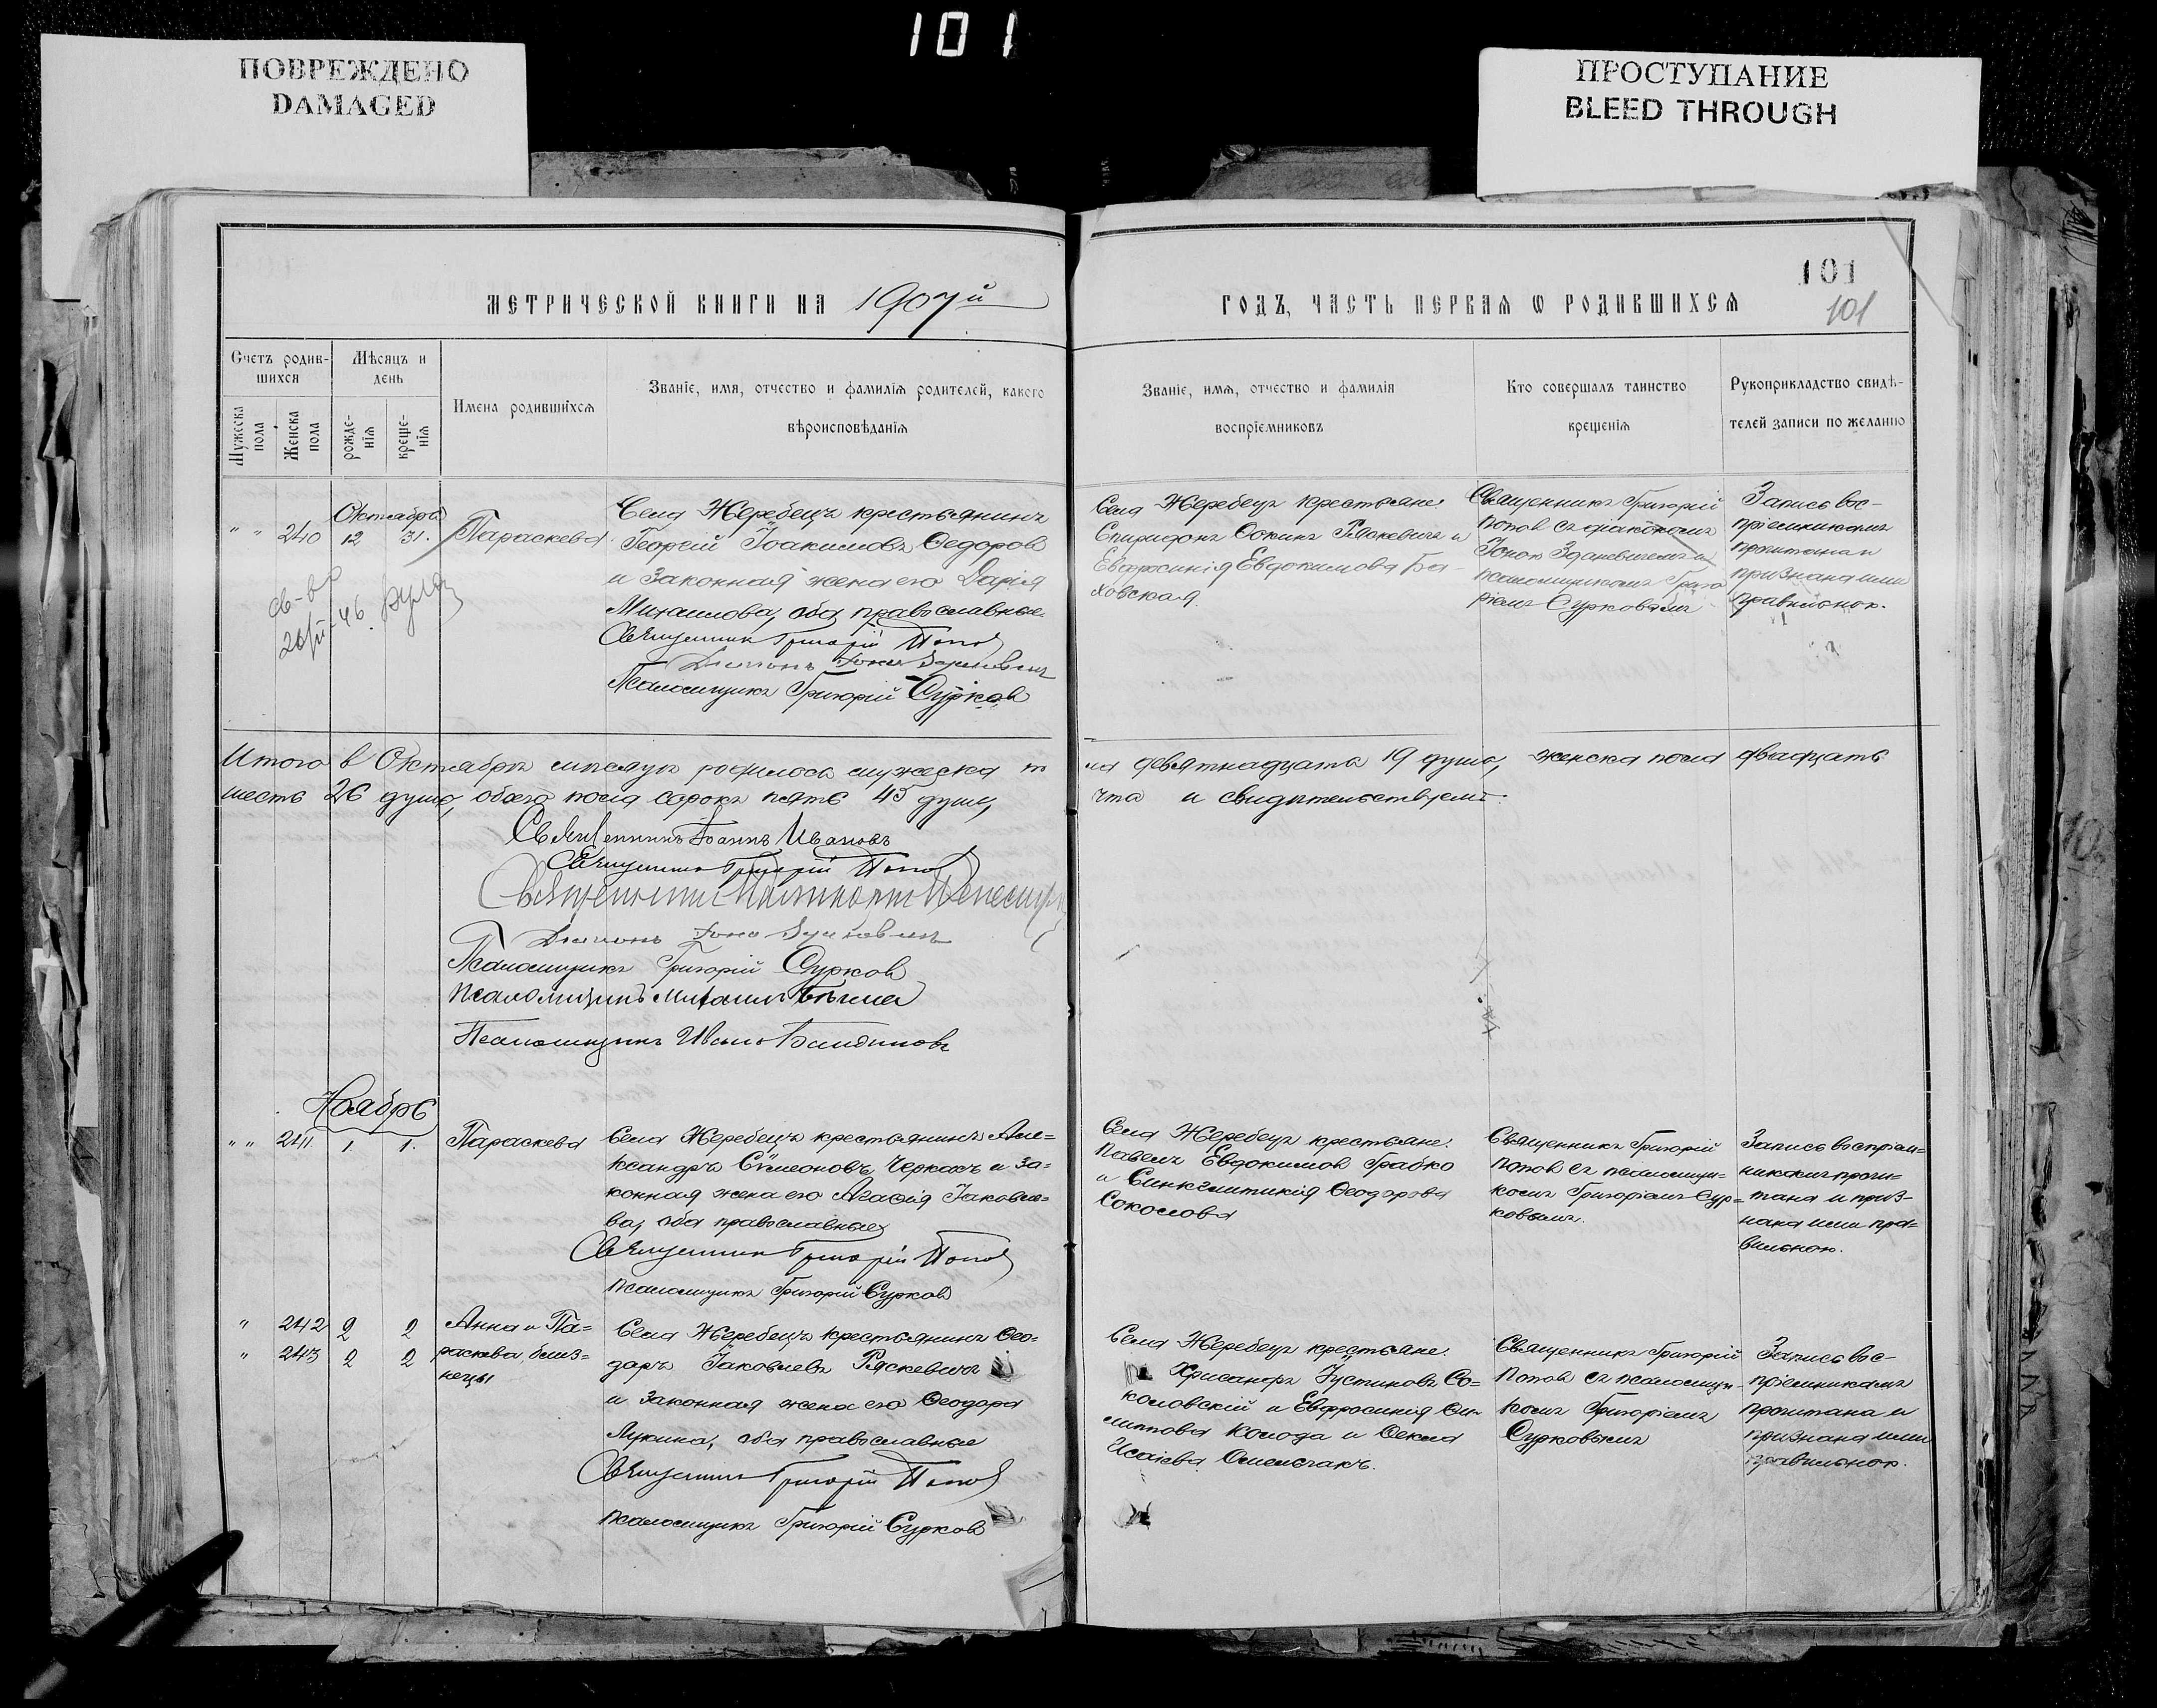 101
ПОВРЕЖДЕНО
DAMAGED
ПРОСТУПАНИЕ
BLEED THROUGH
101
101
МЕТРИЧЕСКОЙ КНИГИ НА 1907й
ГОДЪ, ЧАСТЬ ПЕРВАЯ Ѡ РОДИВШИХСЯ
Счетъ родив-
шихся
Мужеска пола
Женска пола
Мѣсяцъ и
день
рожде-
нія
креще-
нія
Имена родившихся
Званіе, имя, отчество и фамилія родителей, какого
вѣроисповѣданія
Званіе, имя, отчество и фамилія
воспріемниковъ
Кто совершалъ таинство
крещенія
Рукоприкладство свидѣ-
телей записи по желанію
Октября
" " 240 12 31.
Параскева
Села Жеребецъ крестьянинъ
Георгій Іоакимовъ Ѳедоров
и законная жена его Дарія
Михаилова, оба православные
Священник Григорій Попов
Діаконъ Іона
Псаломщикъ Григорій Сурков
Села Жеребецъ крестьяне:
Спиридонъ Ѳокинъ Рäскевичъ и
Евфросинія Евдокимова Ба-
ховская.
Священникъ Григорій
Попов съ діакономъ
Іоною Зданевичемъ и
псаломщикомъ Григо
ріемъ Сурковымъ
Запись вос-
пріемникамъ
прочитана и
признана ими
правильною.
св-во
46
Итого в Октябрѣ мѣсяцѣ родилось мужеска по
ла девятнадцать 19 душъ, женска пола двадцать
шесть 26 душъ, обоего пола сорокъ пять 45 душъ,
что и свидѣтельствуемъ:
Священникъ Іоаннъ Ивановъ
Священник Григорій Попов
Священникъ
Діаконъ Іона
Псаломщикъ Григорій Сурков
Псаломщикъ Михаилъ
Псаломщикъ Иванъ
Ноябрь
" " 241 1. 1.
Параскева
Села Жеребецъ крестьянинъ Але=
ксандръ Сѵмеоновъ Черкасъ и за=
конная жена его Агаѳія Іаковле=
ва, оба православные
Священник Григорій Попов
псаломщикъ Григорій Сурков
Села Жеребецъ крестьяне:
Павелъ Евдокимов Грабко
и Синклитикія Ѳеодорова
Соколова
Священникъ Григорій
Попов съ псаломщи-
комъ Григоріемъ Сур=
ковымъ.
Запись воспріем=
никамъ прочи=
тана и приз-
нана ими пра=
вильною.
" 242 2 2
" 243 2 2
Анна и Па=
раскева близ=
нецы
Села Жеребецъ крестьянинъ Ѳео=
доръ Іаковлевъ Ряскевичъ
и законная жена его Ѳеодора
Лукина, оба православные
Священник Григорій Попов
псаломщикъ Григорій Сурков
Села Жеребецъ крестьяне:
Хрисанфъ Іустиновъ Со=
коловский и Евфросинія Фи
липпова Колода и Ѳекла
Исаіева
Священникъ Григорій
Попов съ псаломщи-
комъ Григоріемъ
Сурковымъ
Запись вос-
пріемникамъ
прочитана и
признана ими
правильною.